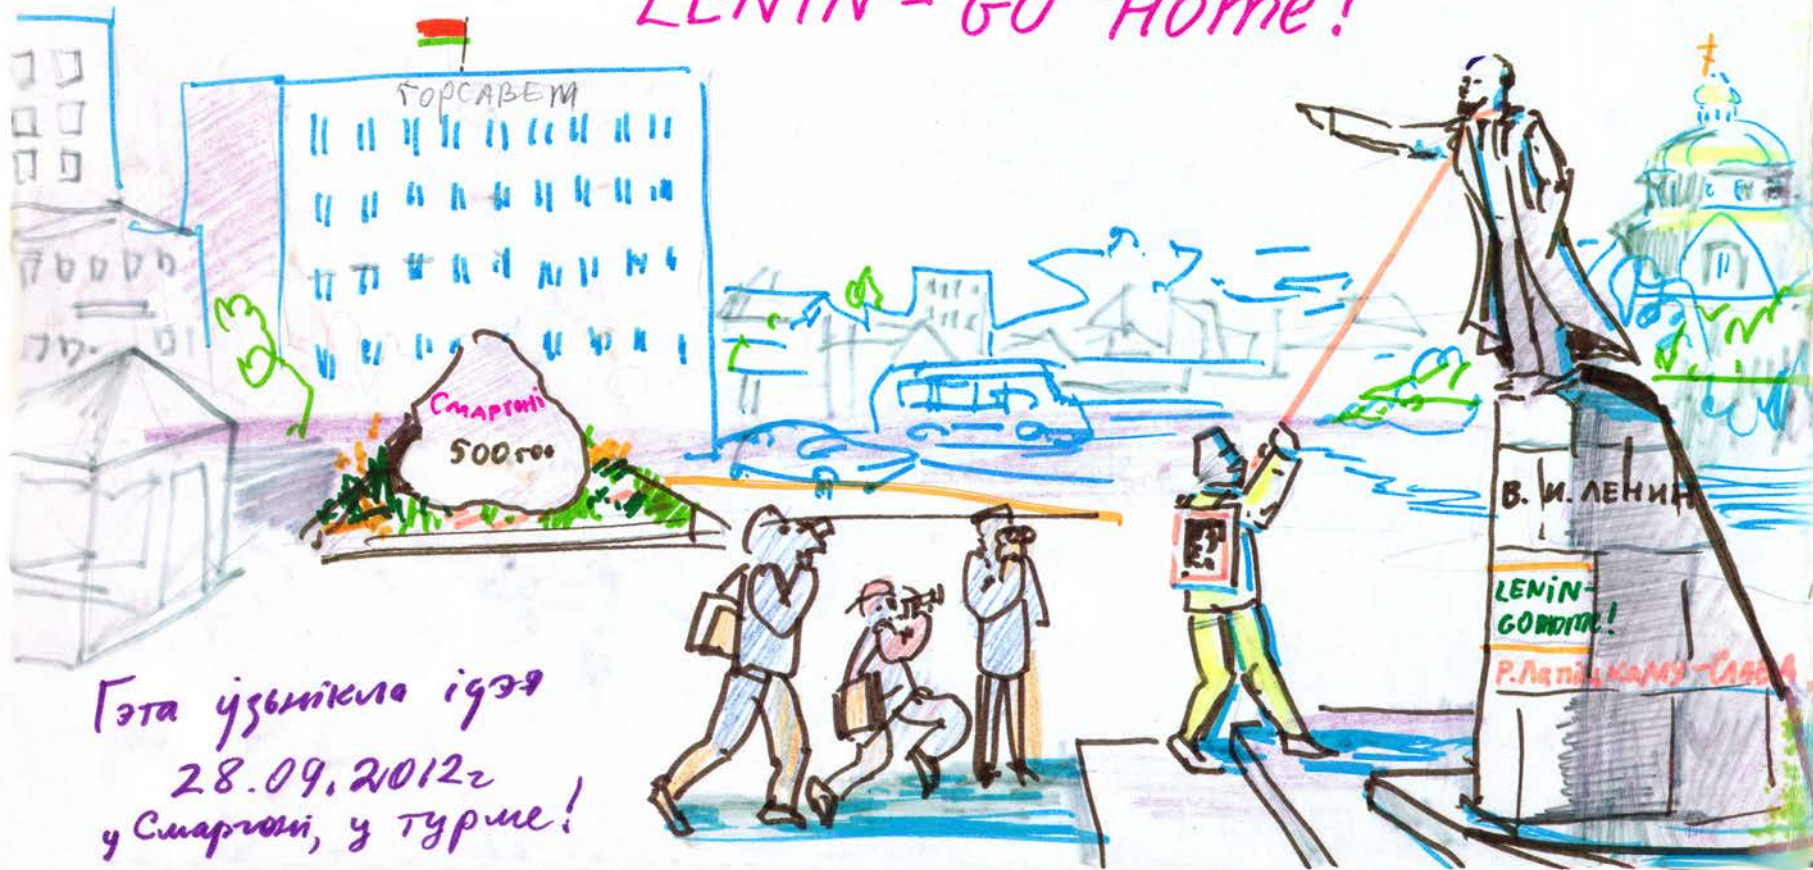 LENIN - GO HOME!
ГОРСАВЕТ
СМАРГОНІ
500 год
В. И. ЛЕНИН
LENIN-
GO HOME!
Р. Лапіцкаму - Слава
Гэта ўзьнікла ідэя
28.09.2012г
у Смаргоні, у турме!